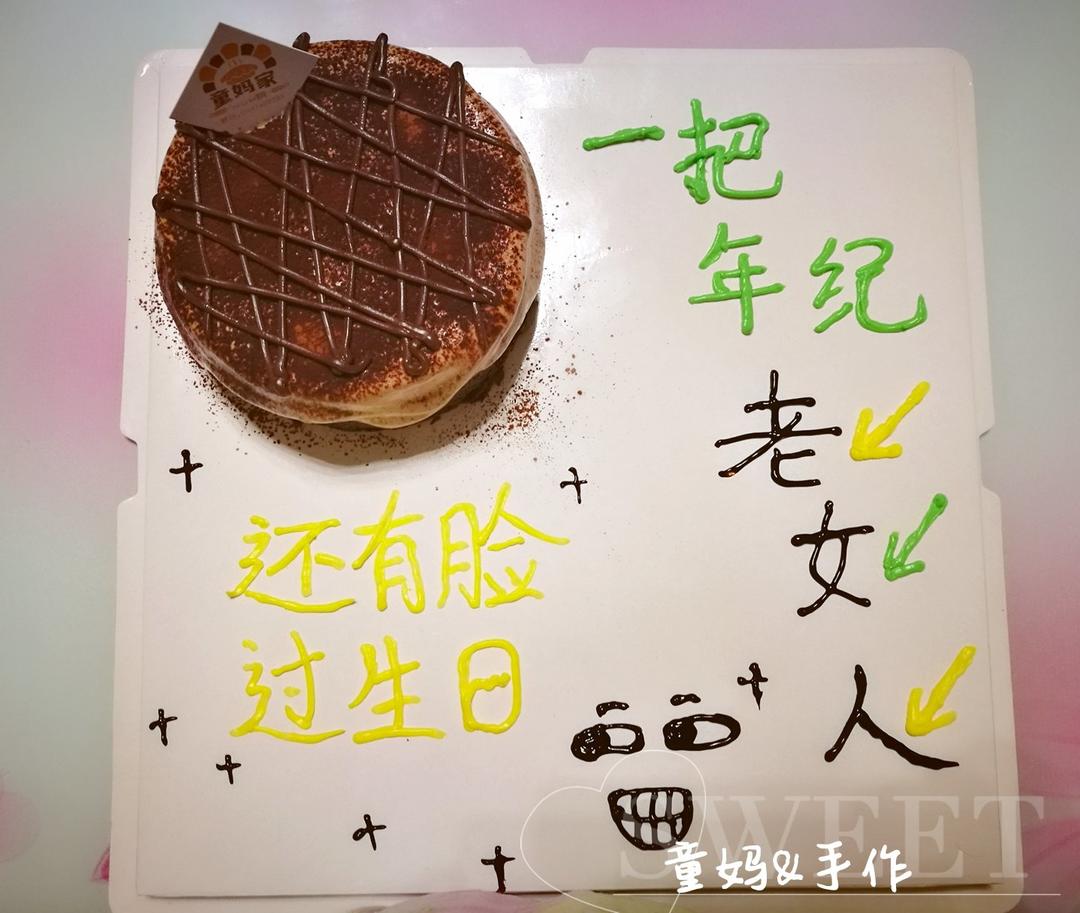 童妈家
一把
年纪
老
女
人
还有脸
过生日
SWEET
童妈&手作